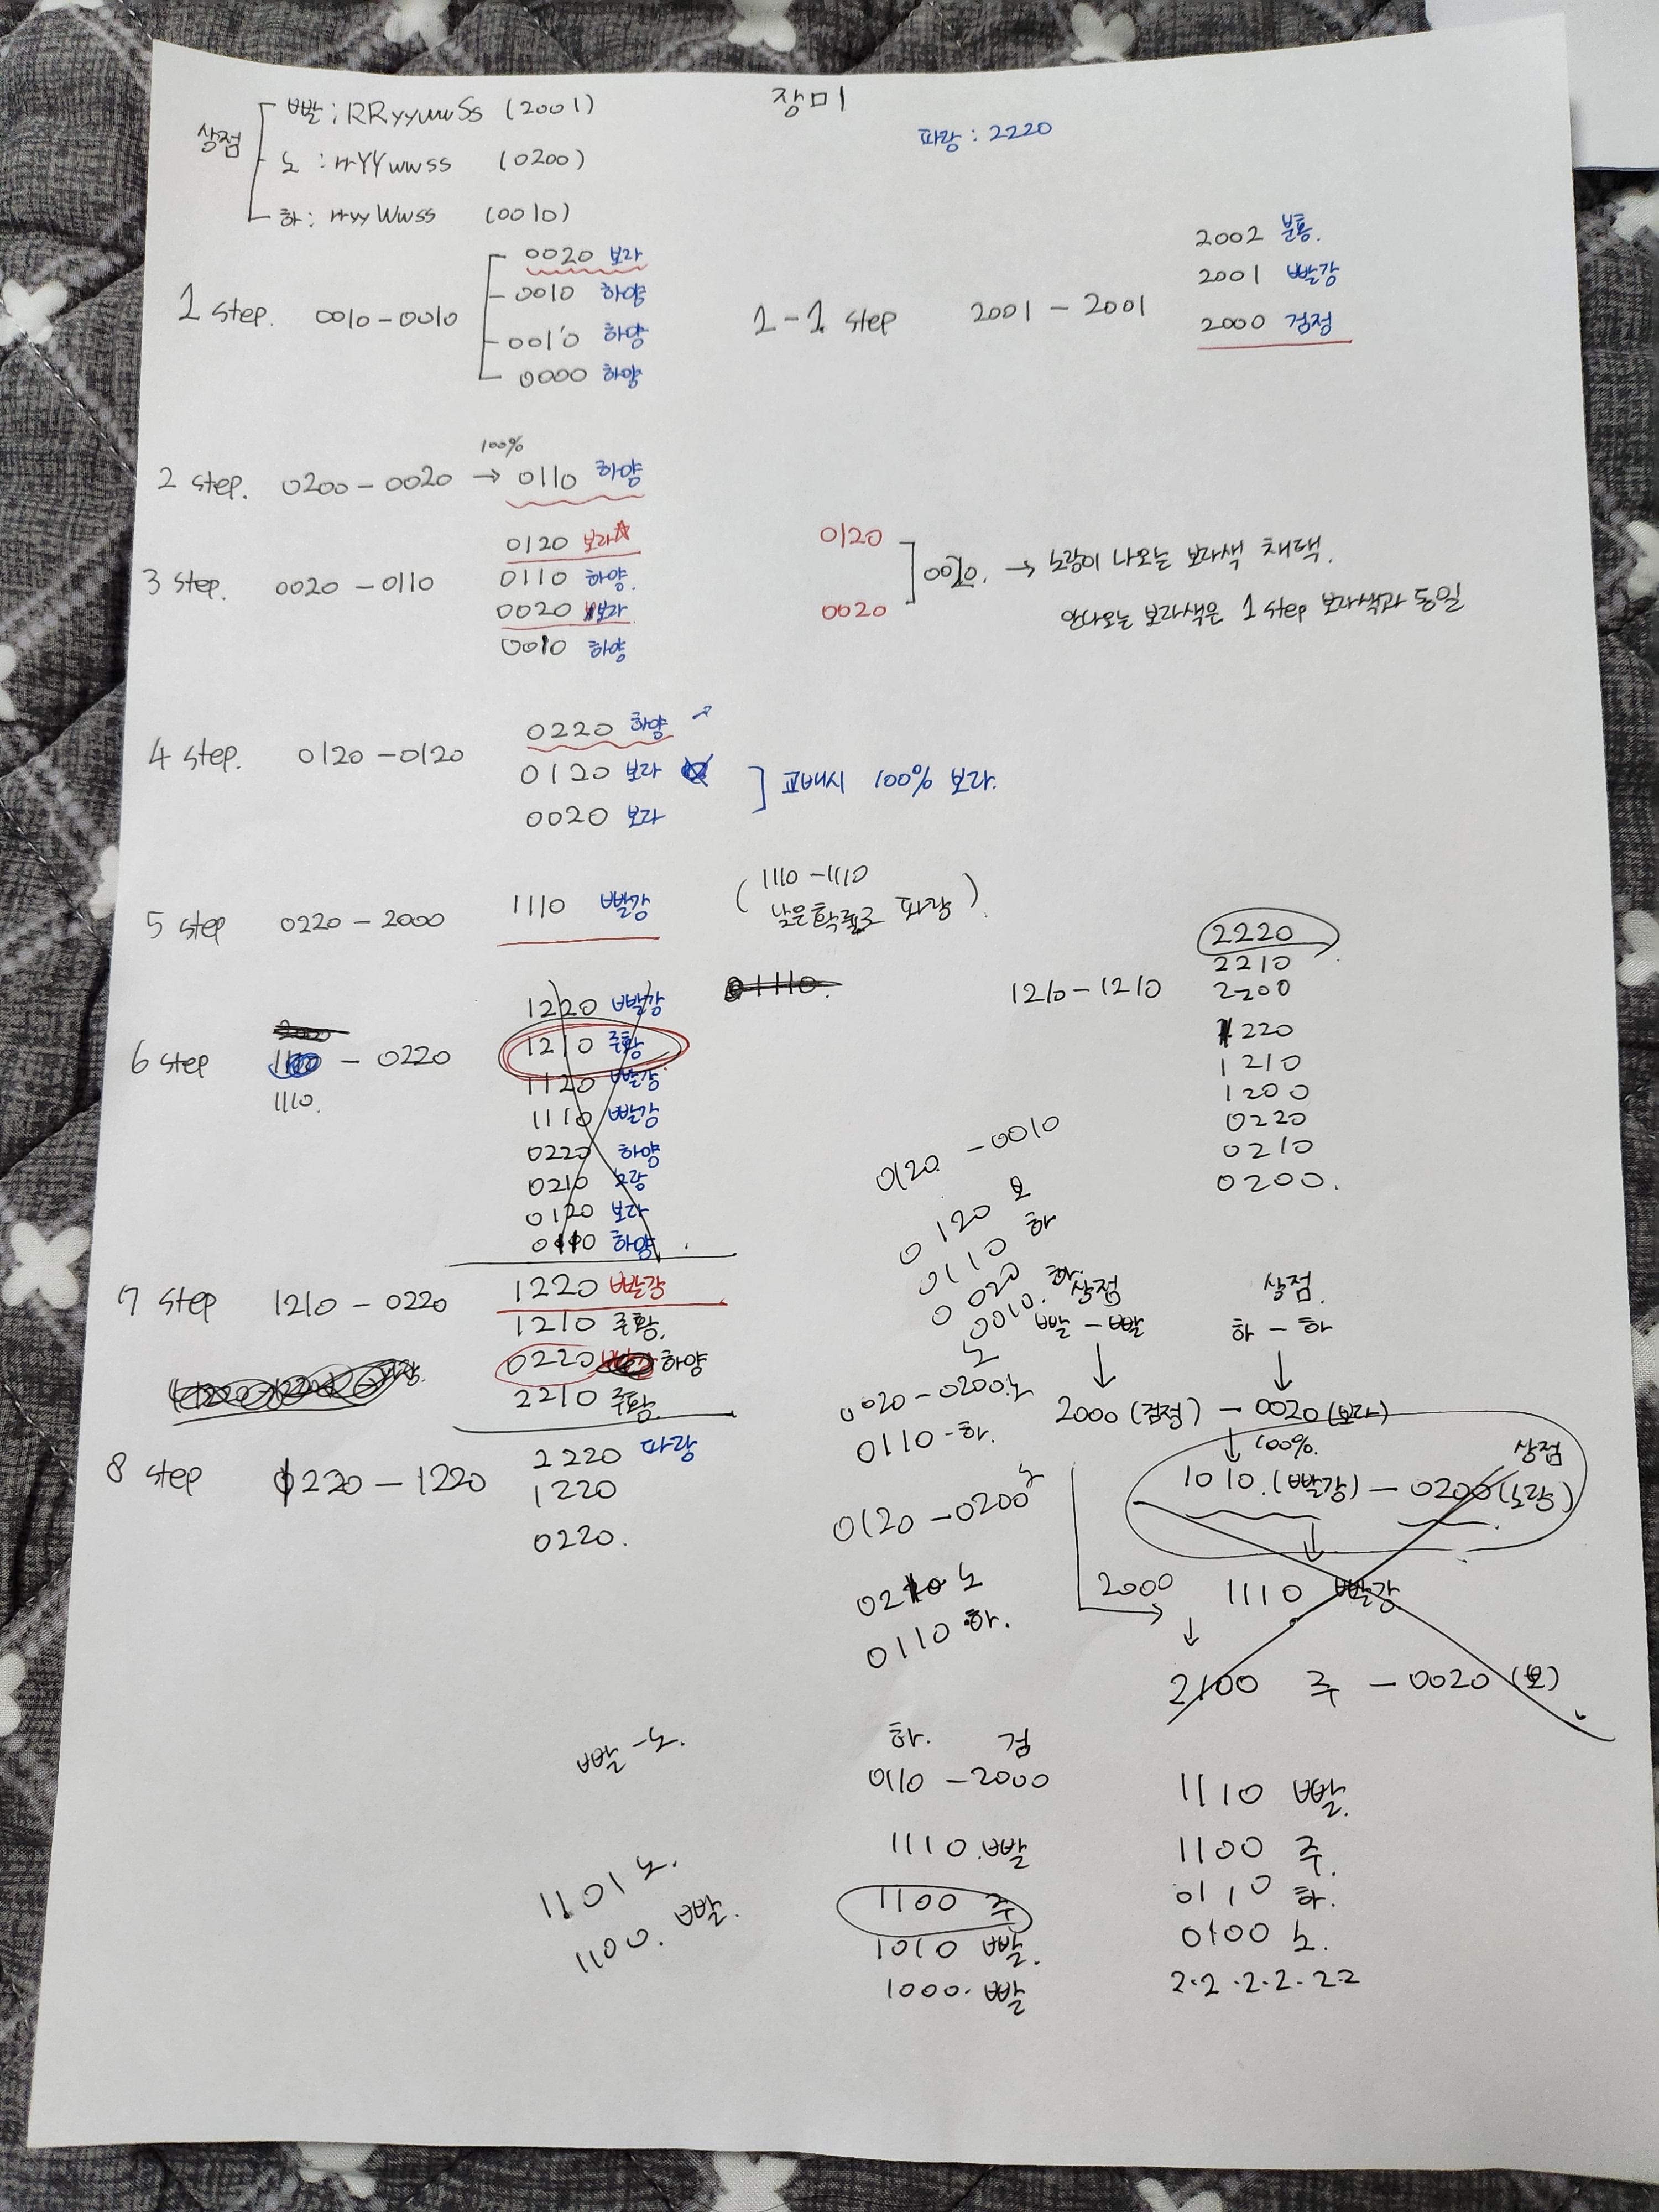 장미
상점
빨 : RRyywwSs (2001)
노 : rrYYwwss (0200)
하 : rryyWwss (0010)
파랑 : 2220
1 step. 0010 - 0010
0020 보라
0010 하양
0010 하양
0000 하양
1-1 step 2001 - 2001
2002 분홍.
2001 빨강
2000 검정
2 step. 0200 - 0020 → 100% 0110 하양
3 step. 0020 - 0110
0120 보라☆
0110 하양.
0020 보라
0010 하양
0120
0020
100%. → 노랑이 나오는 보라색 채택.
안나오는 보라색은 1 step 보라색과 동일
4 step. 0120 - 0120
0220 하양
0120 보라
0020 보라
교배시 100% 보라.
5 step 0220 - 2000 1110 빨강
( 1110 - 1110
낮은확률로 파랑 ).
6 step - 0220
1110.
1220 빨강
1210 주황
1120 빨강
1110 빨강
0220 하양
0210 노랑
0120 보라
0110 하양.
01110.
1210 - 1210
2220
2210
2200
1220
1210
1200
0220
0210
0200.
7 step 1210 - 0220
1220 빨강
1210 주황.
0220 하양
2210 주황.
8 step 1220 - 1220
2220 파랑
1220
0220.
0120 - 0010
0120 보
0110 하
0020 하.
0010.
노
0020 - 0200.노
0110 - 하.
0120 - 0200 노
0210 노
0110 하.
상점
빨 - 빨
상점.
하 - 하
2000 (검정) - 0020 (보라)
↓ 100%.
상점
1010. (빨강) - 0200 (노랑)
2000
1110 빨강
2100 주 - 0020 (보)
빨 - 노.
1101 노.
1100. 빨.
하. 검
0110 - 2000
1110. 빨
1100 주
1010 빨.
1000. 빨
1110 빨.
1100 주.
0110 하.
0100 노.
2·2·2·2·22